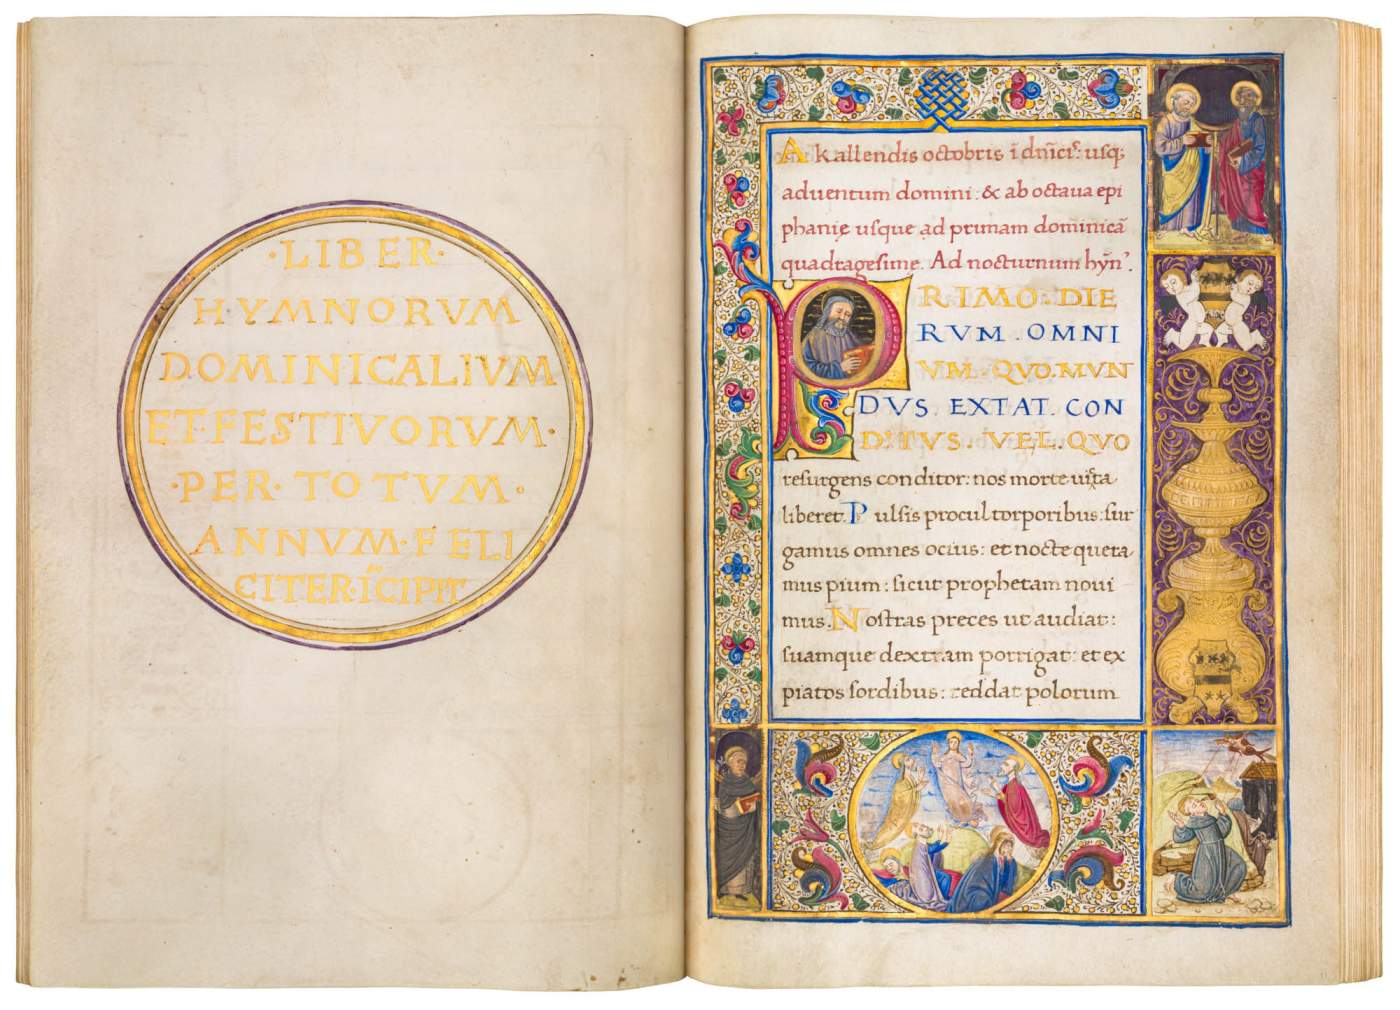 ·LIBER·
HYMNORVM
DOMINICALIVM
ET·FESTIVORVM·
·PER·TOTVM·
ANNVM·FELI
CITER·ĪCIPIT
A kallendis octobris ī dn̄icis: usq;
aduentum domini: & ab octaua epi
phanię usque ad primam dominicā
quadragesimę. Ad nocturnum hȳn'.
PRIMO·DIE
RVM·OMNI
VM·QVO·MVN
DVS·EXTAT·CON
DITVS·VEL·QVO
resurgens conditor: nos morte uicta
liberet. Pulsis procul torporibus: sur
gamus omnes ocius: et nocte quera
mus pium: sicut prophetam noui
mus. Nostras preces ut audiat:
suamque dextram porrigat: et ex
piatos sordibus: reddat polorum